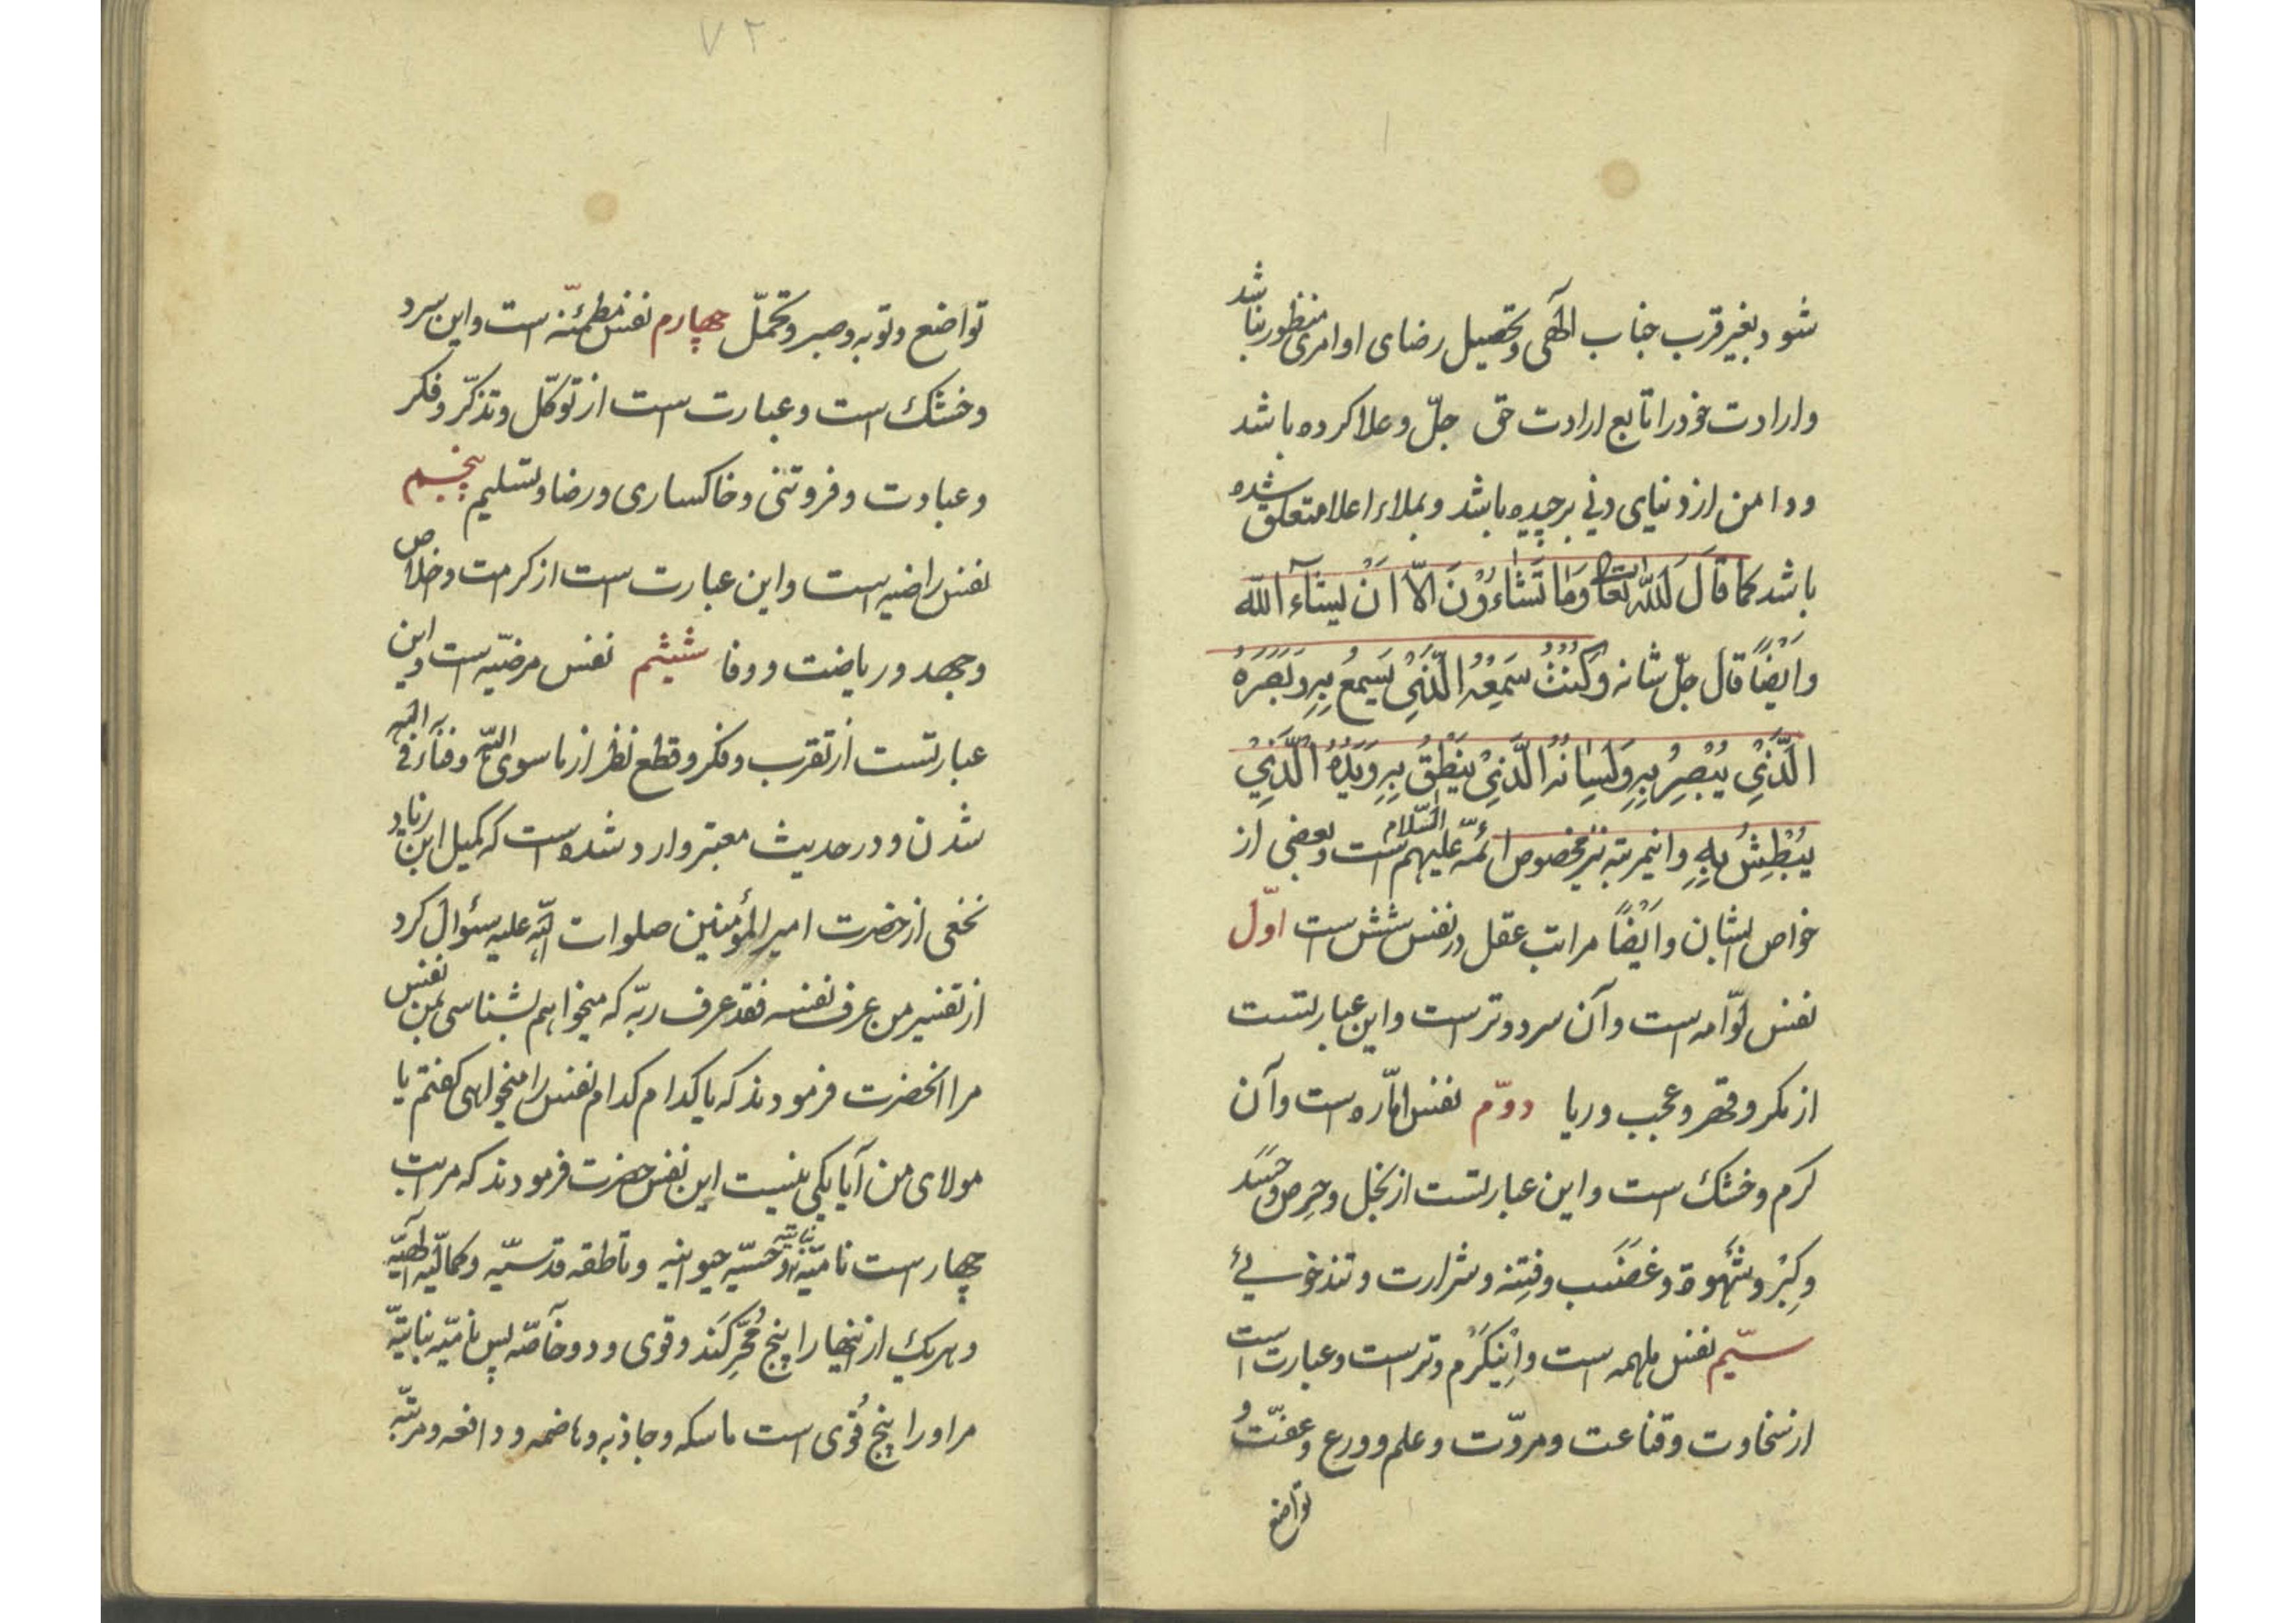 شود بغیر قرب جناب الهی و تحصیل رضای او امری منظور نباشد
و ارادت خود را تابع ارادت حق جلّ و علا کرده باشد
و دامن از دنیای دنی برچیده باشد و بملاء اعلا متعلق شده
باشد کما قَالَ الله تعالی وَمَا تَشَاءُوْنَ اِلّا اَنْ یشَآءَ الله
و اَیْضًا قال جلّ شانه و کُنْتُ سَمْعُهُ الَّذِیْ یَسْمَعُ بِهِ وَ بَصَرَهُ
الَّذِیْ یُبْصِرُ بِهِ وَ لِسَانَهُ الَّذِیْ یَنْطِقُ بِهِ وَ یَدُهُ الَّذِیْ
یَبْطِشُ بِهِ و اینمرتبه نیز مخصوص ائمّه علیهم السّلام است و بعضی از
خواص ایشان و اَیْضًا مراتب عقل در نفس شش است اوّل
نفس لوّامه است و آن سرد و تر است و این عبارتست
از مکر و قهر و عجب و ریا دوّم نفس امّاره است و آن
گرم و خشک است و این عبارتست از بخل و حِرص و حَسَد
و کِبْر و شَهْوة و غَضَب و فِتِنه و شرارت و تندخویی
سیّم نفس ملهمه است و اِینْ گَرْم و تر است و عبارت است
از سخاوت و قناعت و مروّت و علم و ورع و عفّت و
تواضع
تواضع و توبه و صبر و تحمّل چهارم نفس مطمئنّه است و این سرد
و خشک است و عبارت است از توکّل و تذکّر و فکر
و عبادت و فروتنی و خاکساری و رضا و تسلیم پنجم
نفس راضیه است و این عبارت است از کرمت و خلاص
و جهد و ریاضت و وفا ششم نفس مرضیّه است و این
عبارتست از تقرب و فکر و قطع نظر از ما سوی اللّه و فناء فی اللّه
شدن و در حدیث معتبر وارد شده است که کمیل ابن زیاد
نخعی از حضرت امیر المؤمنین صلوات اللّه علیه سئوال کرد
از تفسیر من عرف نفسه فقد عرف ربّه که میخواهم بشناسی بمن نفس
مرا انحضرت فرمودند که یا کدام کدام نفس را میخواهی گفتم یا
مولای من آیا یکی نیست این نفس حضرت فرمودند که مراتب
چهار است نامیّه نباتیّه و حسّیه حیوانیه و ناطقه قدسیّه و کمالّیه الهیّه
و هریک از اینها را پنج مُحَّرِکَند و قوی و دو خاصّه پس نامیّه نباتیّه
مر او را پنج قُوی است ماسکه و جاذبه و هاضمه و دافعه و مربّیه